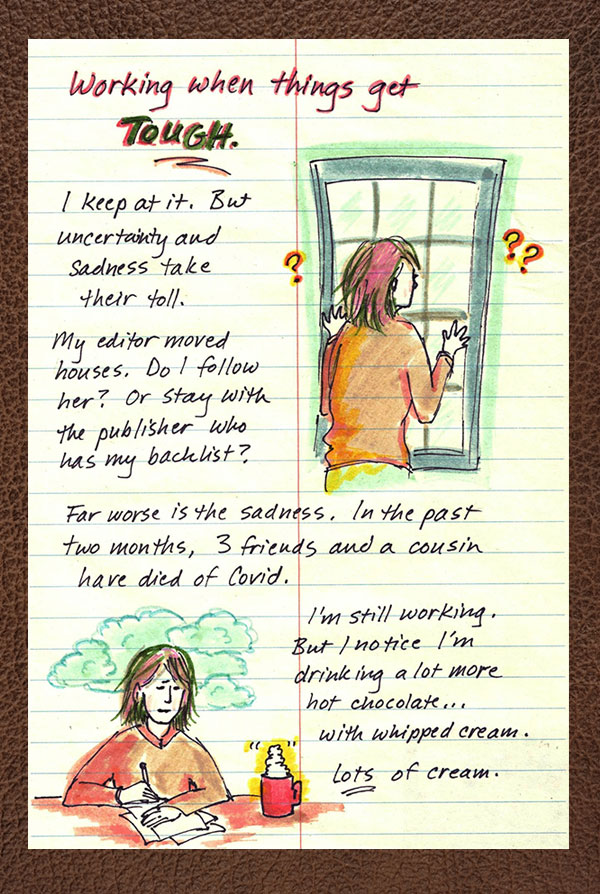 Working when things get
TOUGH.
I keep at it. But
uncertainty and
sadness take
their toll.
?
??
My editor moved
houses. Do I follow
her? Or stay with
the publisher who
has my backlist?
Far worse is the sadness. In the past
two months, 3 friends and a cousin
have died of Covid.
I'm still working.
But I notice I'm
drinking a lot more
hot chocolate...
with whipped cream.
Lots of cream.